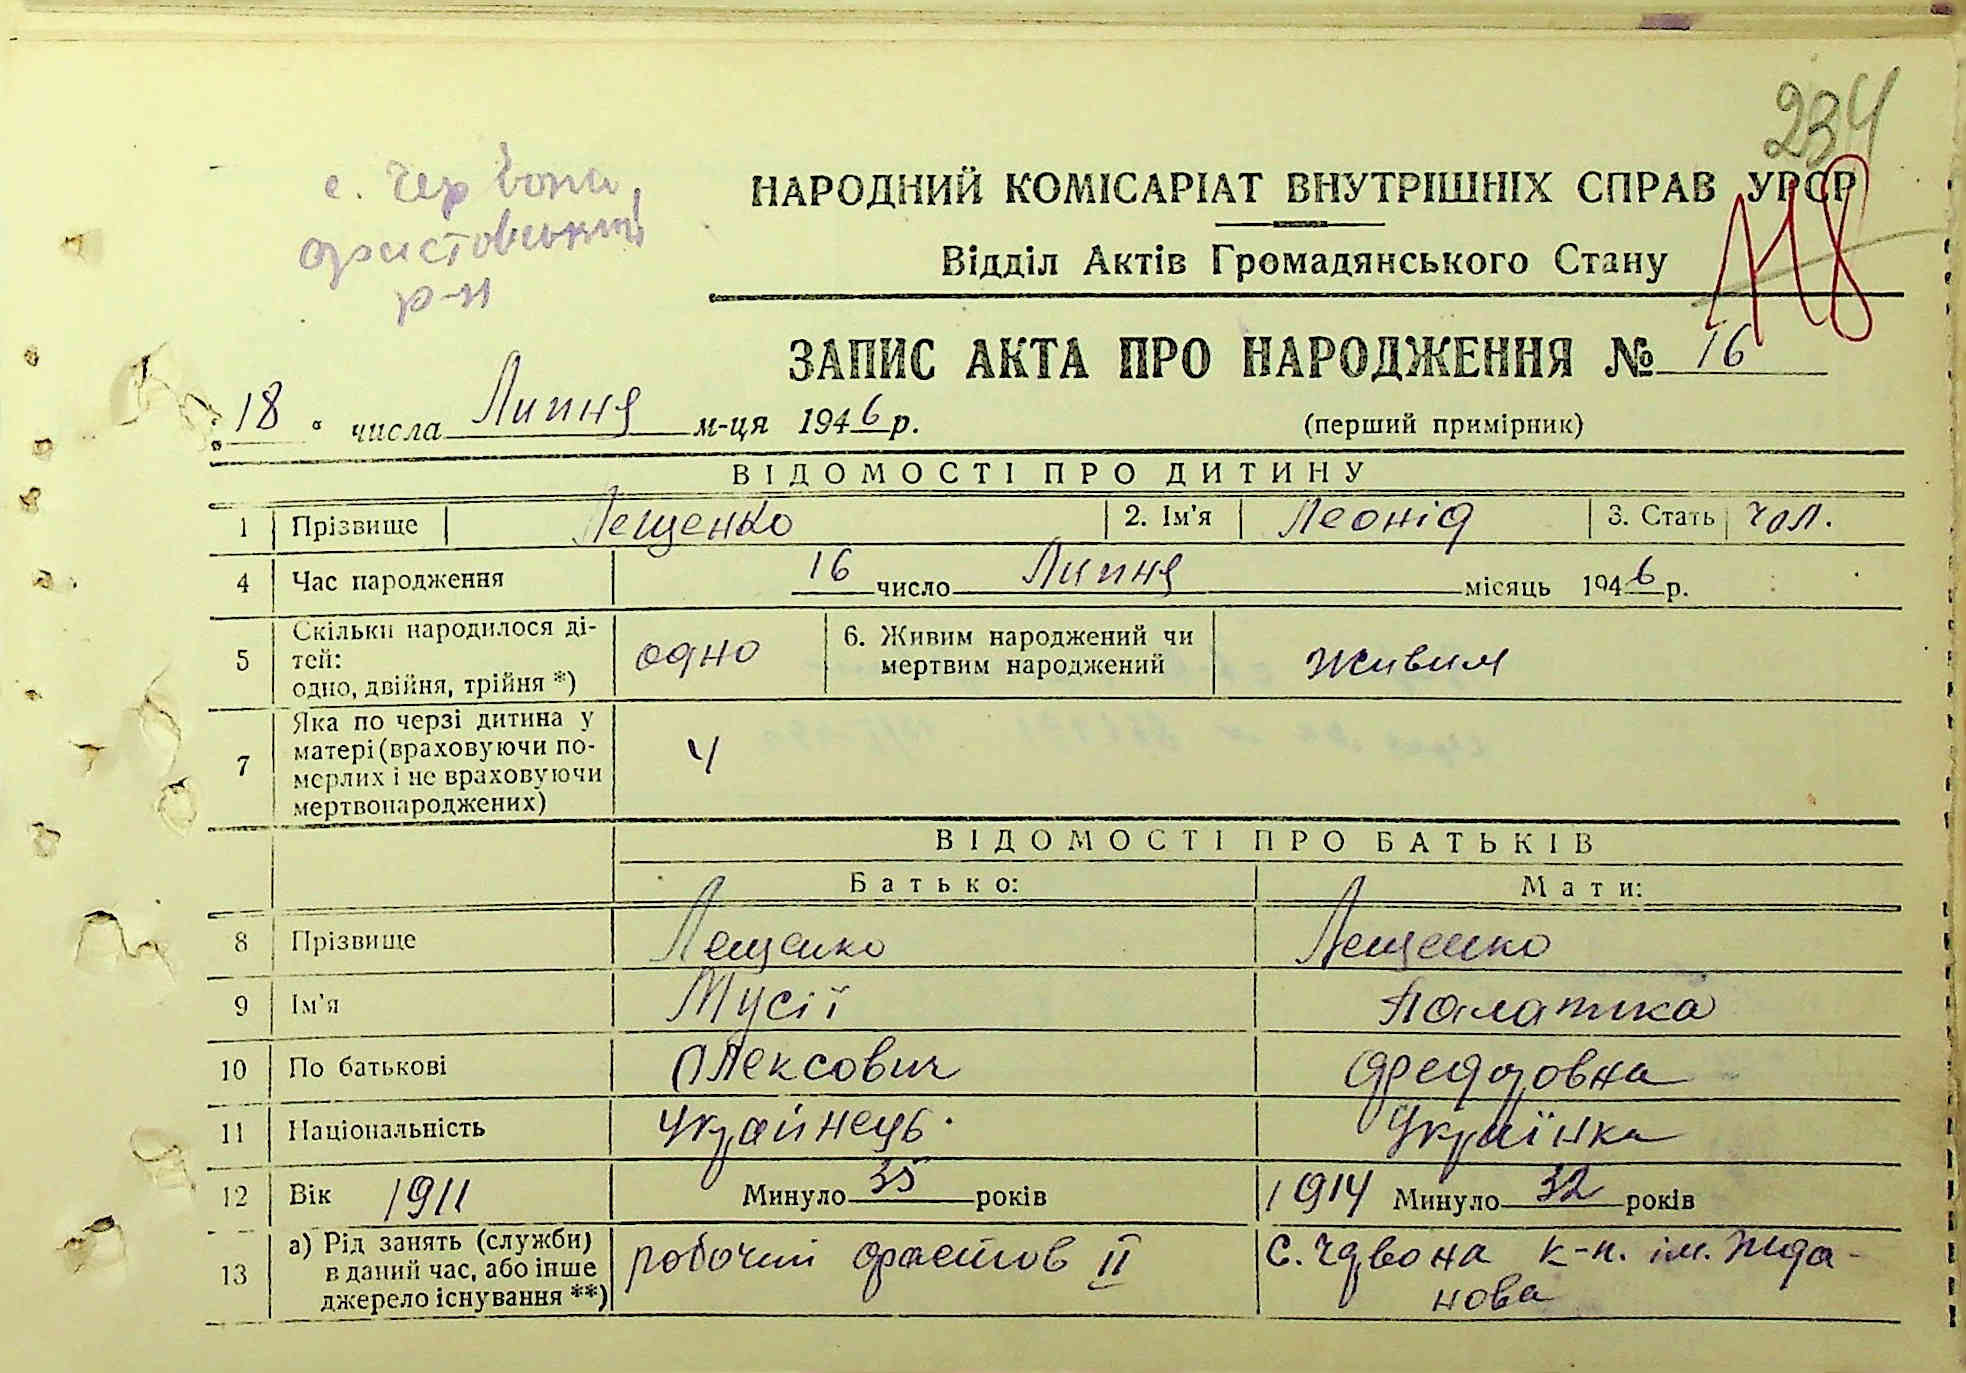 234
с. Червона
фастовський
р-н
НАРОДНИЙ КОМІСАРІАТ ВНУТРІШНІХ СПРАВ УРСР
118
Відділ Актів Громадянського Стану
ЗАПИС АКТА ПРО НАРОДЖЕННЯ № 16
„18“ числа Липня м-ця 1946 р.
(перший примірник)
ВІДОМОСТІ ПРО ДИТИНУ
1 Прізвище Лещенко 2. Ім'я Леонід 3. Стать чол.
4 Час народження 16 число Липня місяць 1946 р.
5 Скільки народилося ді-
тей:
одно, двійня, трійня *) одно 6. Живим народжений чи
мертвим народжений живим
7 Яка по черзі дитина у
матері (враховуючи по-
мерлих і не враховуючи
мертвонароджених) 4
ВІДОМОСТІ ПРО БАТЬКІВ
Батько: Мати:
8 Прізвище Лещенко Лещенко
9 Ім'я Мусій Палажка
10 По батькові Олексович Федоровна
11 Національність Українець. Українка
12 Вік 1911 Минуло 35 років 1914 Минуло 32 років
13 а) Рід занять (служби)
в даний час, або інше
джерело існування **) робочий фастов II с. Червона к-п. ім. Жда-
нова